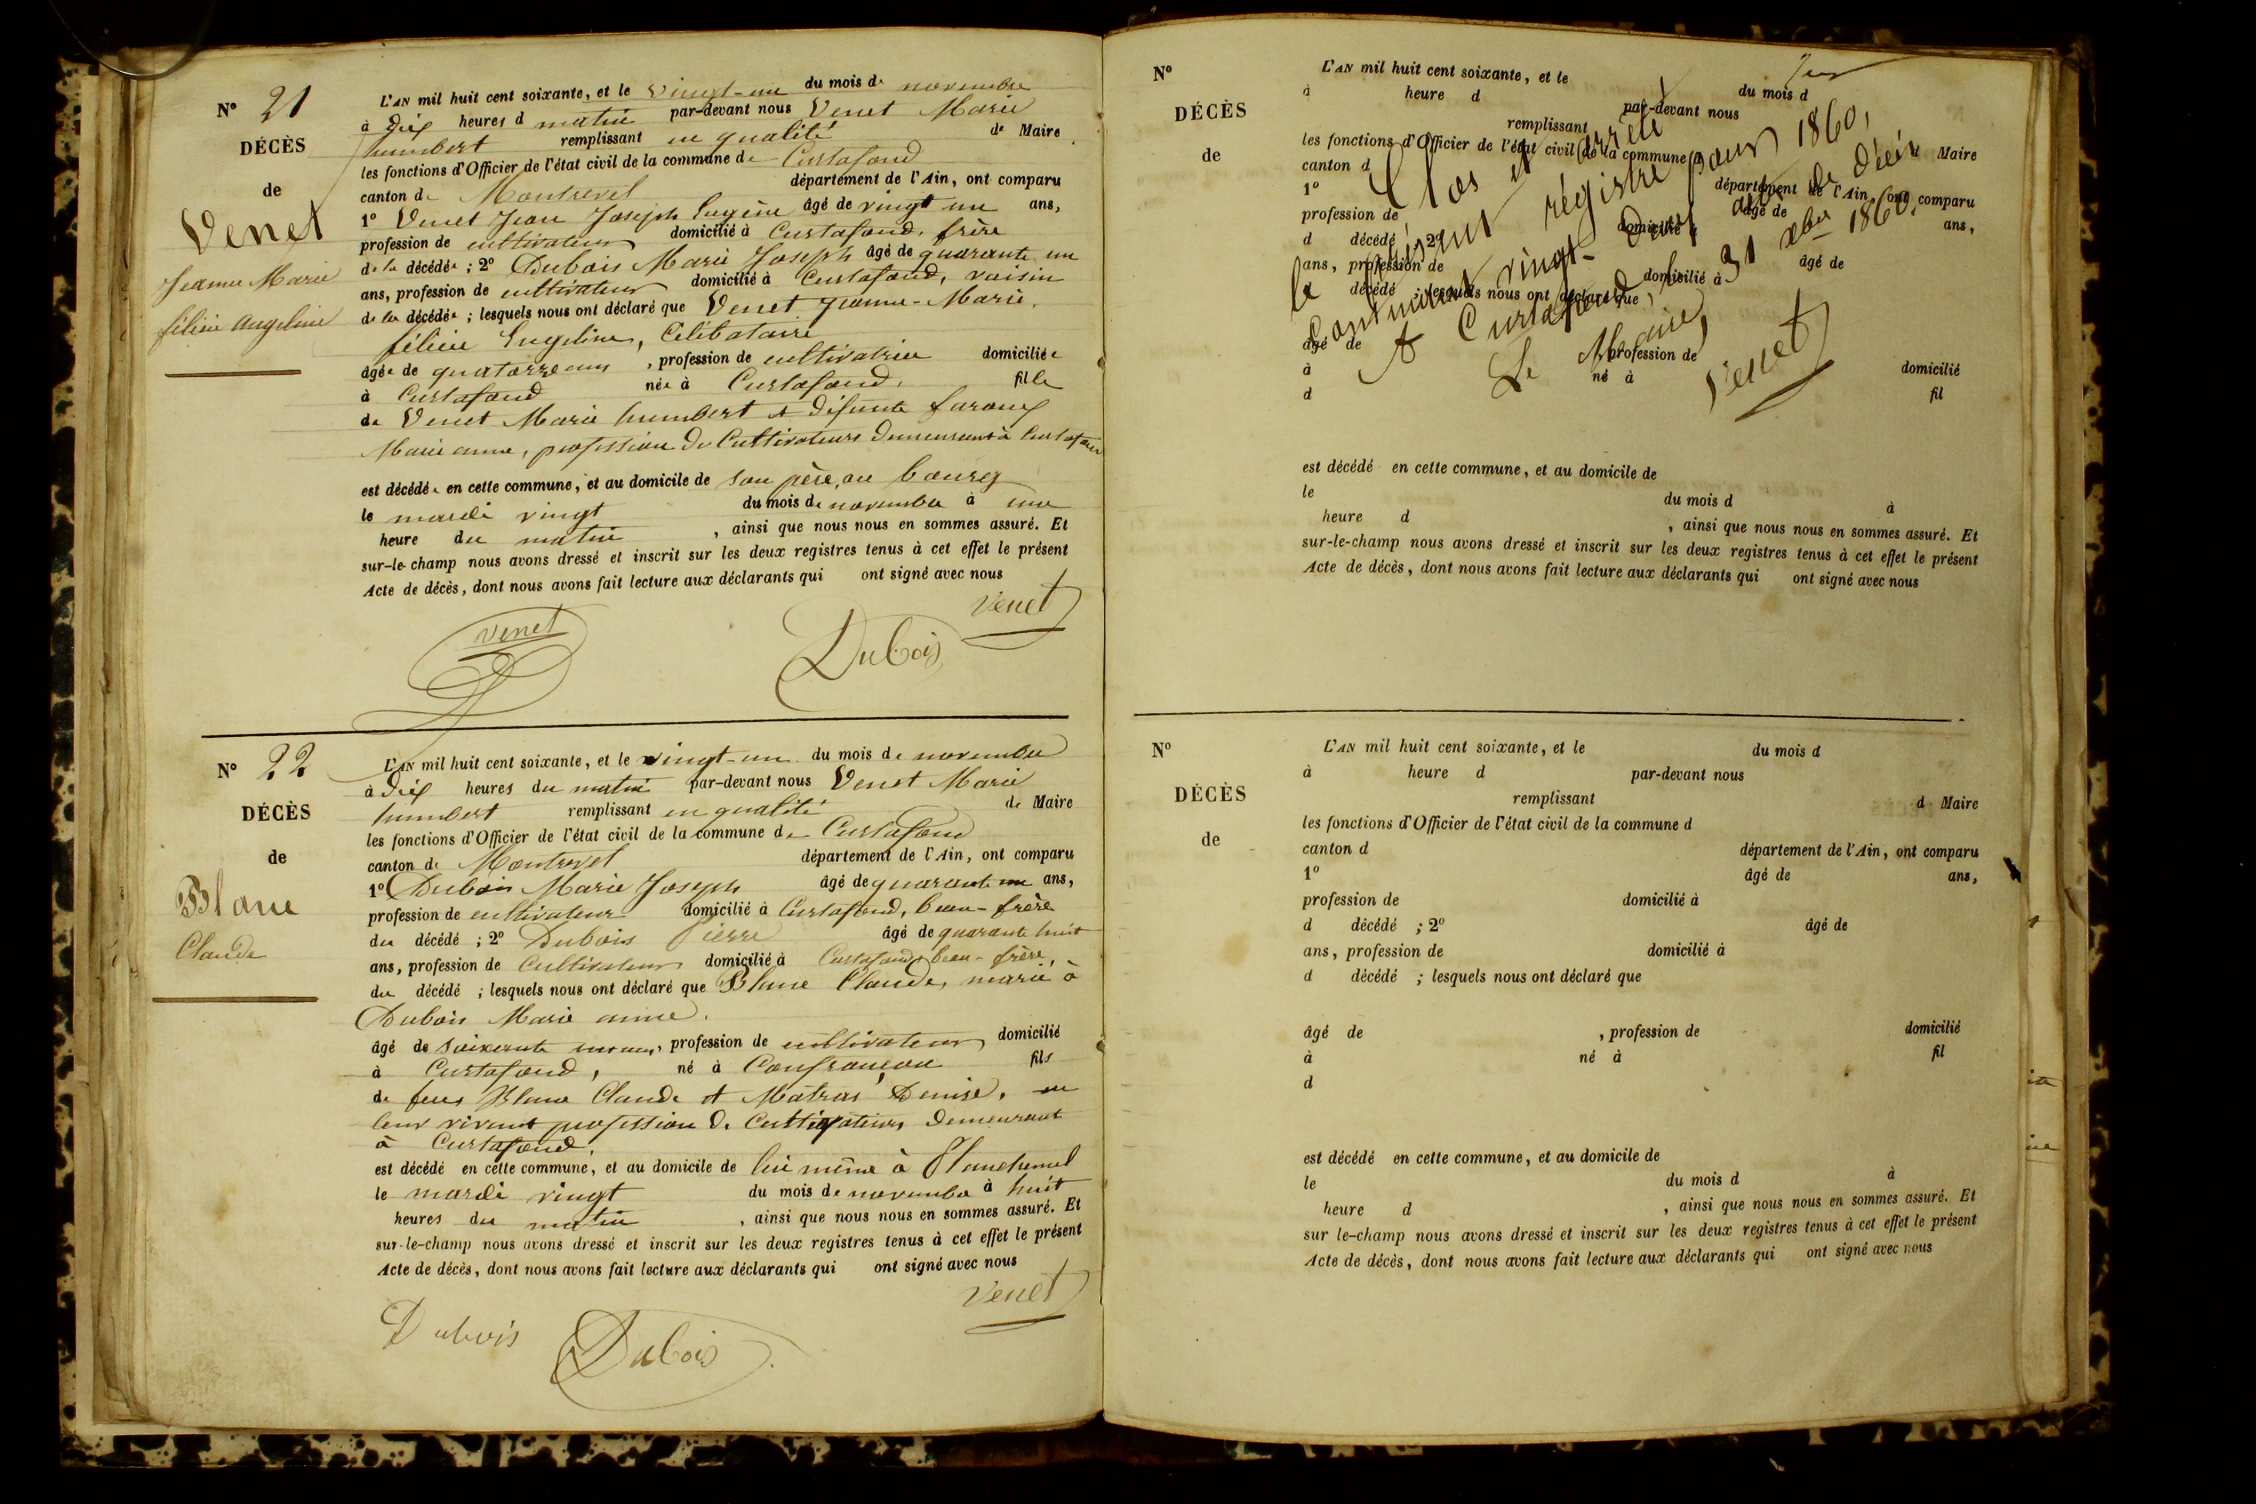 N° 21
DÉCÈS
de
Venet
Jeanne Marie
félicie Angeline
L'AN mil huit cent soixante, et le vingt-un du mois de novembre
à dix heures d matin par-devant nous Venet Marie
humbert remplissant en qualité de Maire
les fonctions d'Officier de l'état civil de la commune de Curtafond
canton de Montrevel département de l'Ain, ont comparu
1° Venet Jean Joseph Eugène âgé de vingt un ans,
profession de cultivateur domicilié à Curtafond, frère
de la décédée ; 2° Dubois Marie Joseph âgé de quarante un
ans, profession de cultivateur domicilié à Curtafond, voisin
de la décédée ; lesquels nous ont déclaré que Venet Jeanne-Marie
félicie Engeline, Célibataire
âgée de quatorze ans, profession de cultivatrice domiciliée
à Curtafond née à Curtafond, fille
de Venet Marie humbert et défunte faroux
Marie anne, profession de Cultivateurs demeurant à Curtafond
est décédée en cette commune, et au domicile de son père, au bourg
le mardi vingt du mois de novembre à une
heure du matin, ainsi que nous nous en sommes assuré. Et
sur-le-champ nous avons dressé et inscrit sur les deux registres tenus à cet effet le présent
Acte de décès, dont nous avons fait lecture aux déclarants qui ont signé avec nous
Venet
Venet
Dubois
N° 22
DÉCÈS
de
Blanc
Claude
L'AN mil huit cent soixante, et le vingt-un du mois de novembre
à dix heures du matin par-devant nous Venet Marie
humbert remplissant en qualité de Maire
les fonctions d'Officier de l'état civil de la commune de Curtafond
canton de Montrevel département de l'Ain, ont comparu
1° Dubois Marie Joseph âgé de quarante un ans,
profession de cultivateur domicilié à Curtafond, beau-frère
du décédé ; 2° Dubois Pierre âgé de quarante huit
ans, profession de Cultivateur domicilié à Curtafond beau-frère,
du décédé ; lesquels nous ont déclaré que Blanc Claude, marié à
Dubois Marie anne.
âgé de soixante ans, profession de cultivateur domicilié
à Curtafond, né à Confrançon fils
de feus Blanc Claude et Matras Denise, en
leur vivant profession de Cultivateurs demeurant
à Curtafond.
est décédé en cette commune, et au domicile de lui même à
le mardi vingt du mois de novembre à huit
heures du matin, ainsi que nous nous en sommes assuré. Et
sur-le-champ nous avons dressé et inscrit sur les deux registres tenus à cet effet le présent
Acte de décès, dont nous avons fait lecture aux déclarants qui ont signé avec nous
Venet
Dubois
Dubois
N°
DÉCÈS
de
L'AN mil huit cent soixante, et le du mois d
à heure d par-devant nous
remplissant d Maire
les fonctions d'Officier de l'état civil de la commune
canton d département de l'Ain, ont comparu
1° âgé de ans,
profession de domicilié à
d décédé ; 2° âgé de
ans, profession de domicilié à
d décédé ; lesquels nous ont déclaré que
âgé de profession de domicilié
à né à fil
d
Clos et arrêté
le présent régistre pour 1860,
Contenant vingt-deux actes de décès
A Curtafond, le 31 xbre 1860.
Le Maire,
Venet
est décédé en cette commune, et au domicile de
le du mois d à
heure d , ainsi que nous nous en sommes assuré. Et
sur-le-champ nous avons dressé et inscrit sur les deux registres tenus à cet effet le présent
Acte de décès, dont nous avons fait lecture aux déclarants qui ont signé avec nous
N°
DÉCÈS
de
L'AN mil huit cent soixante, et le du mois d
à heure d par-devant nous
remplissant d Maire
les fonctions d'Officier de l'état civil de la commune d
canton d département de l'Ain, ont comparu
1° âgé de ans,
profession de domicilié à
d décédé ; 2° âgé de
ans, profession de domicilié à
d décédé ; lesquels nous ont déclaré que
âgé de , profession de domicilié
à né à fil
d
est décédé en cette commune, et au domicile de
le du mois d à
heure d , ainsi que nous nous en sommes assuré. Et
sur le-champ nous avons dressé et inscrit sur les deux registres tenus à cet effet le présent
Acte de décès, dont nous avons fait lecture aux déclarants qui ont signé avec nous